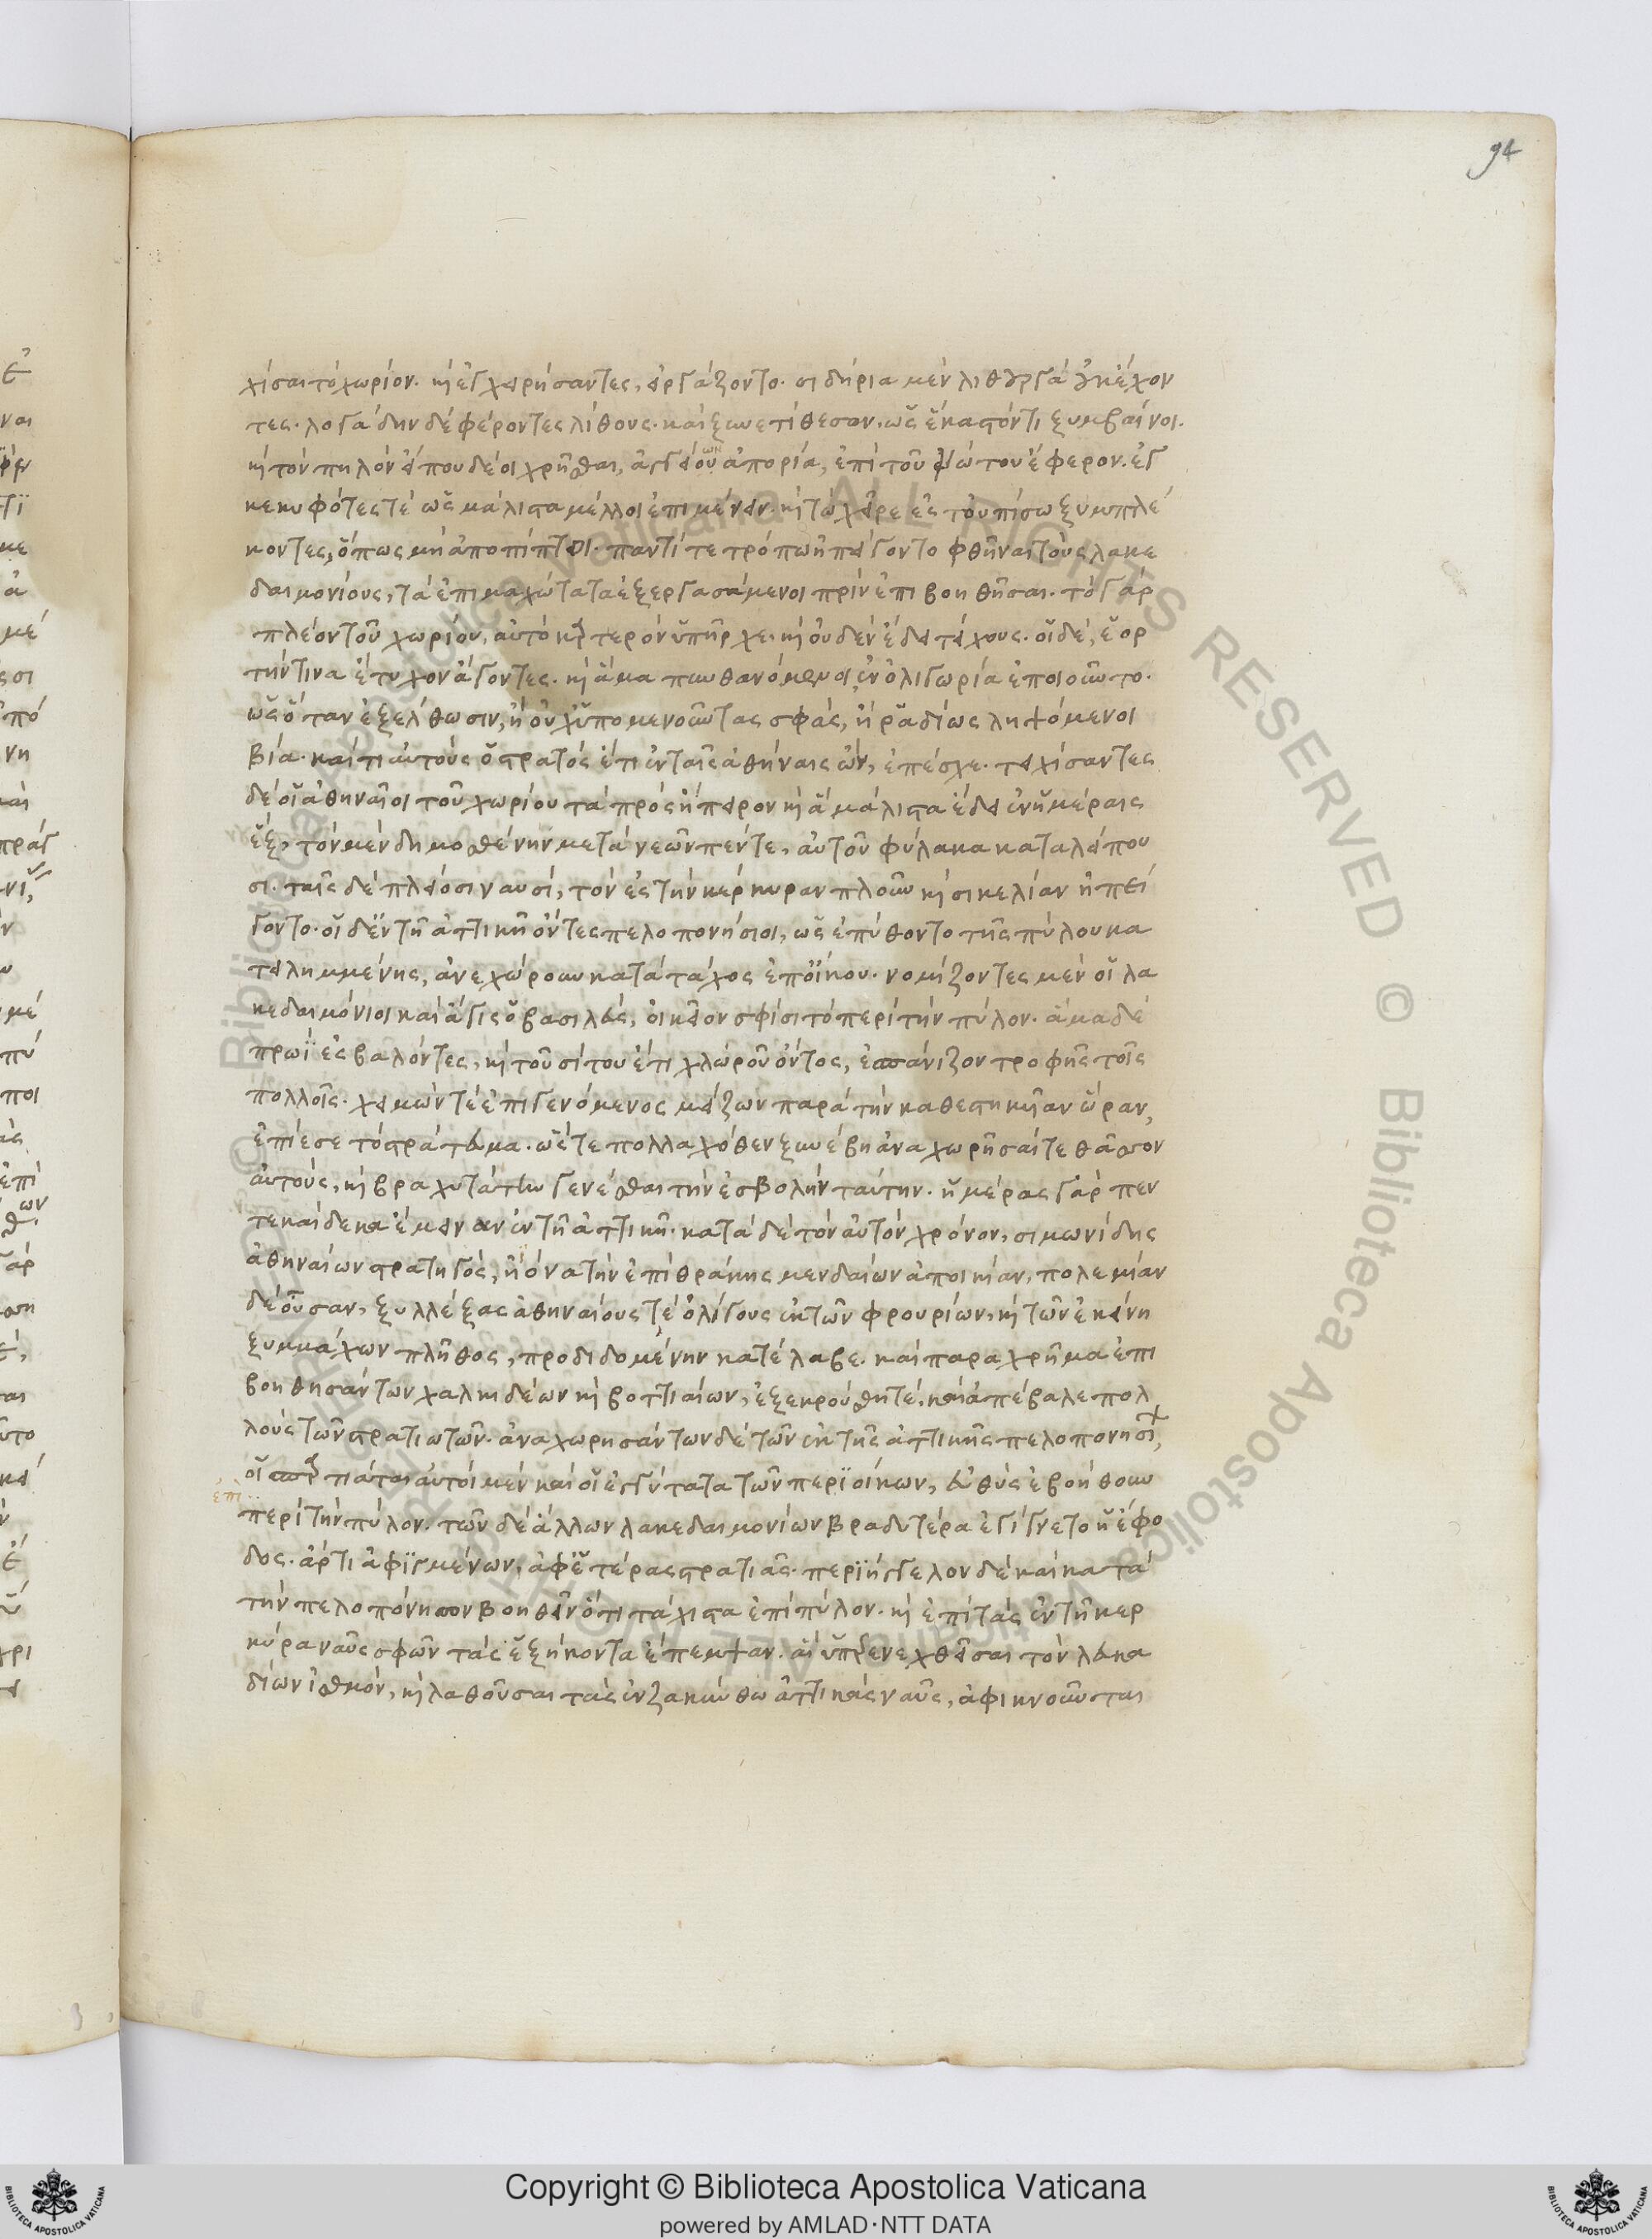 94
χίσαι τὸ χωρίον. κὶ ἐγχειρήσαντες, εἰργάζοντο. σιδήρια μὲν λιθουργὰ οὐκ ἔχον
τες. λογάδην δὲ φέροντες λίθους. καὶ ξυνετίθεσαν, ὡς ἕκαστόν τι ξυμβαίνοι.
κὶ τὸν πηλὸν εἴ που δέοι χρῆσθαι, ἀγγείων ἀπορία, ἐπὶ τοῦ νώτου ἔφερον. ἐγ
κεκυφότες τὲ ὡς μάλιστα μέλλοι ἐπιμένειν. κὶ τὼ χεῖρε ἐς τοὐπίσω ξυμπλέ
κοντες, ὅπως μὴ ἀποπίπτοι. παντί τε τρόπω ἠπείγοντο φθῆναι τοὺς λακε
δαιμονίους, τὰ ἐπιμαχώτατα ἐξεργασάμενοι πρὶν ἐπιβοηθῆσαι. τὸ γὰρ
πλέον τοῦ χωρίου, αὐτὸ καρτερὸν ὑπῆρχε. κὶ οὐδὲν ἔδει τείχους. οἱ δὲ, ἑορ
τήν τινα ἔτυχον ἄγοντες. κὶ ἅμα πυνθανόμενοι ἐν ὀλιγωρία ἐποιοῦντο.
ὡς ὅταν ἐξέλθωσιν, ἢ οὐχ ὑπομενοῦντας σφᾶς, ἢ ῥαδίως ληψόμενοι
βία. καί τι αὐτοὺς ὁ στρατὸς ἔτι ἐν ταῖς ἀθήναις ὢν, ἐπέσχε. τειχίσαντες
δὲ οἱ ἀθηναῖοι τοῦ χωρίου τὰ πρὸς ἤπειρον κὶ ἃ μάλιστα ἔδει ἐν ἡμέραις
ἓξ, τὸν μὲν δημοσθένην μετὰ νεῶν πέντε, αὐτοῦ φύλακα καταλείπου
σι. ταῖς δὲ πλείοσι ναυσὶ, τὸν ἐς τὴν κέρκυραν πλοῦν κὶ σικελίαν ἠπεί
γοντο. οἱ δ' ἐν τῆ ἀττικῆ ὄντες πελοπονήσιοι, ὡς ἐπύθοντο τῆς πύλου κα
τειλημμένης, ἀνεχώρουν κατὰ τάχος ἐπ' οἴκου. νομίζοντες μὲν οἱ λα
κεδαιμόνιοι καὶ ἆγις ὁ βασιλεὺς, οἰκεῖον σφίσι τὸ περὶ τὴν πύλον. ἅμα δὲ
πρωῒ ἐσβαλόντες, κὶ τοῦ σίτου ἔτι χλωροῦ ὄντος, ἐσπάνιζον τροφῆς τοῖς
πολλοῖς. χειμών τὲ ἐπιγενόμενος μείζων παρὰ τὴν καθεστηκυῖαν ὥραν,
ἐπίεσε τὸ στράτευμα. ὥστε πολλαχόθεν ξυνέβη ἀναχωρῆσαί τε θᾶσσον
αὐτοὺς, κὶ βραχυτάτην γενέσθαι τὴν ἐσβολὴν ταύτην. ἡμέρας γὰρ πεν
τεκαίδεκα ἔμειναν ἐν τῆ ἀττικῆ. κατὰ δὲ τὸν αὐτὸν χρόνον, σιμωνίδης
ἀθηναίων στρατηγὸς, ἠιόνα τὴν ἐπὶ θράκης μενδαίων ἀποικίαν, πολεμίαν
δὲ οὖσαν, ξυλλέξας ἀθηναίους τὲ ὀλίγους ἐκ τῶν φρουρίων, κὶ τῶν ἐκείνη
ξυμμάχων πλῆθος, προδιδομένην κατέλαβε. καὶ παραχρῆμα ἐπι
βοηθησάντων χαλκιδέων κὶ βοττιαίων, ἐξεκρούσθη τὲ, καὶ ἀπέβαλε πολ
λοὺς τῶν στρατιωτῶν. ἀναχωρησάντων δὲ τῶν ἐκ τῆς ἀττικῆς πελοπονησίων,
οἱ σπαρτιᾶται αὐτοὶ μὲν καὶ οἱ ἐγγύτατα τῶν περϊοίκων, εὐθὺς ἐβοήθουν
ἐπι
περὶ τὴν πύλον. τῶν δὲ ἄλλων λακεδαιμονίων βραδυτέρα ἐγίγνετο ἡ ἔφο
δος. ἄρτι ἀφϊγμένων, ἀφ' ἑτέρας στρατιᾶς. περϊήγγελον δὲ καὶ κατὰ
τὴν πελοπόνησον βοηθεῖν ὅτι τάχιστα ἐπὶ πύλον. κὶ ἐπὶ τὰς ἐν τῆ κερ
κύρα ναῦς σφῶν τὰς ἑξήκοντα ἔπεμψαν. αἳ ὑπερενεχθεῖσαι τὸν λευκα
δίων ἰσθμὸν, κὶ λαθοῦσαι τὰς ἐν ζακύνθω ἀττικὰς ναῦς, ἀφικνοῦνται
Copyright © Biblioteca Apostolica Vaticana
powered by AMLAD·NTT DATA